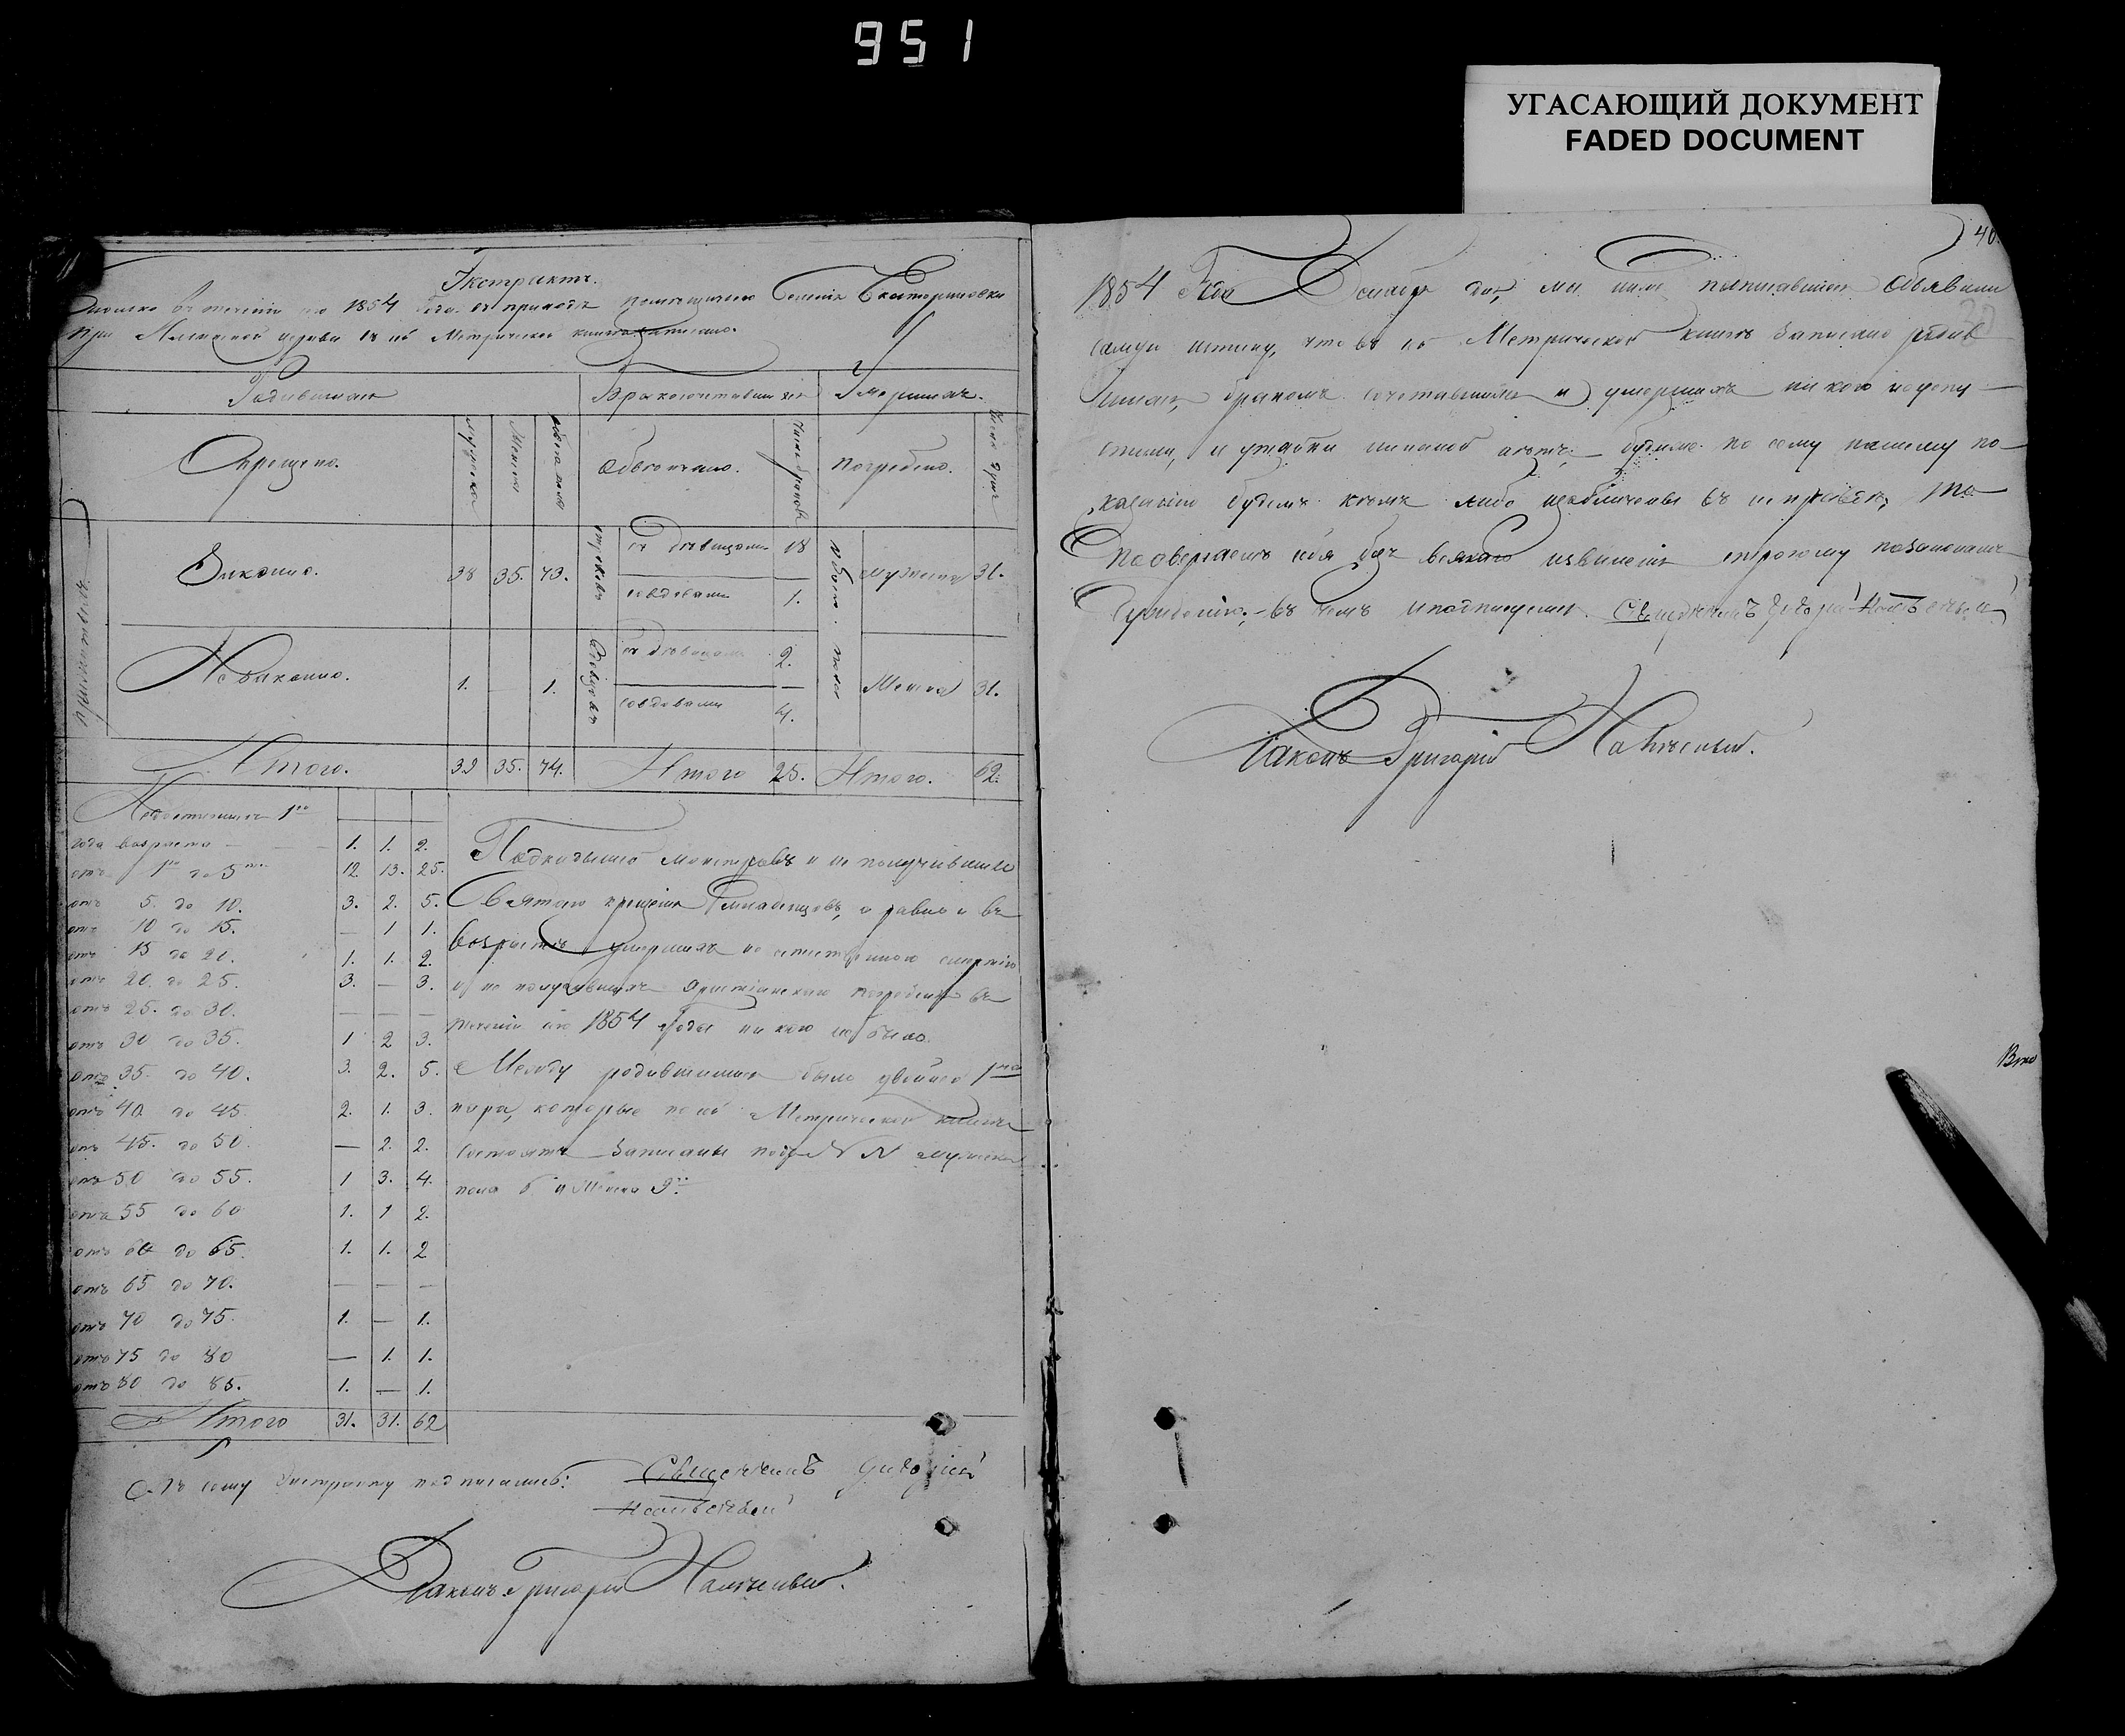 951
УГАСАЮЩИЙ ДОКУМЕНТ
FADED DOCUMENT
Экстрактъ.
Сколько въ теченіи сего 1854 года въ приходѣ помѣщичьемъ Селеніи Екатериновки
при церкви въ сей Метрической книгѣ записано.
Родившихся
Бракосочтавшихся
Умершихъ.
Крещено.
мужеска
Женска
обоего пола
Обвѣнчано.
Число браковъ
Погребено.
Число душъ
Законно.
38 35. 73.
отроковъ
съ дѣвицами 18
со вдовами 1.
обоего пола
мужеска 31.
Незаконно.
1. — 1.
вдовцовъ
съ дѣвицами 2.
со вдовами 4.
Женска 31.
Итого. 39 35. 74. Итого 25. Итого. 62.
Недостигшихъ 1го
года возраста — 1. 1. 2.
отъ 1го до 5ти 12 13. 25.
отъ 5. до 10. 3. 2. 5.
отъ 10 до 15. — 1 1.
отъ 15 до 20. 1. 1. 2.
отъ 20. до 25. 3. — 3.
отъ 25. до 30. — — —
отъ 30 до 35. 1 2 3.
отъ 35. до 40. 3. 2. 5.
отъ 40 до 45 2. 1. 3.
отъ 45. до 50. — 2. 2.
отъ 50 до 55. 1 3. 4.
отъ 55 до 60 1. 1 2.
отъ 60 до 65. 1. 1. 2
отъ 65 до 70. — — —
отъ 70 до 75. 1. — 1.
отъ 75 до 80 — 1. 1.
отъ 80 до 85. 1. — 1.
Итого 31. 31. 62
монстровъ и не получившихъ
Святаго крещенія младенцовъ, а равно и въ
возрастѣ умершихъ не естественною смертію
и не получившихъ христіанскаго погребенія въ
теченіи сего 1854 года ни кого не было.
Между родившимися была двойней 1на
пара, которые по сей Метрической книгѣ
состоятъ записаны подъ N N мужеска
пола 6 и Женска 9й.
Къ сему Экстракту подписались: Священникъ
Діаконъ Григорій
40.
1854 Года Декабря дня, мы ниже подписавшіеся объявили
самую истину, что въ сей Метрической книгѣ записано родив
шихся, бракомъ сочетавшихся и умершихъ ни кого не опу-
стили, и утайки никакой нѣтъ, буде же по сему нашему по-
казанію будемъ кѣмъ либо изобличены въ неправдѣ, то
подвергаемъ себя безъ всякаго извиненія строгому по законамъ
сужденію; въ чемъ и подписуемся. Священникъ
Діаконъ Григорій